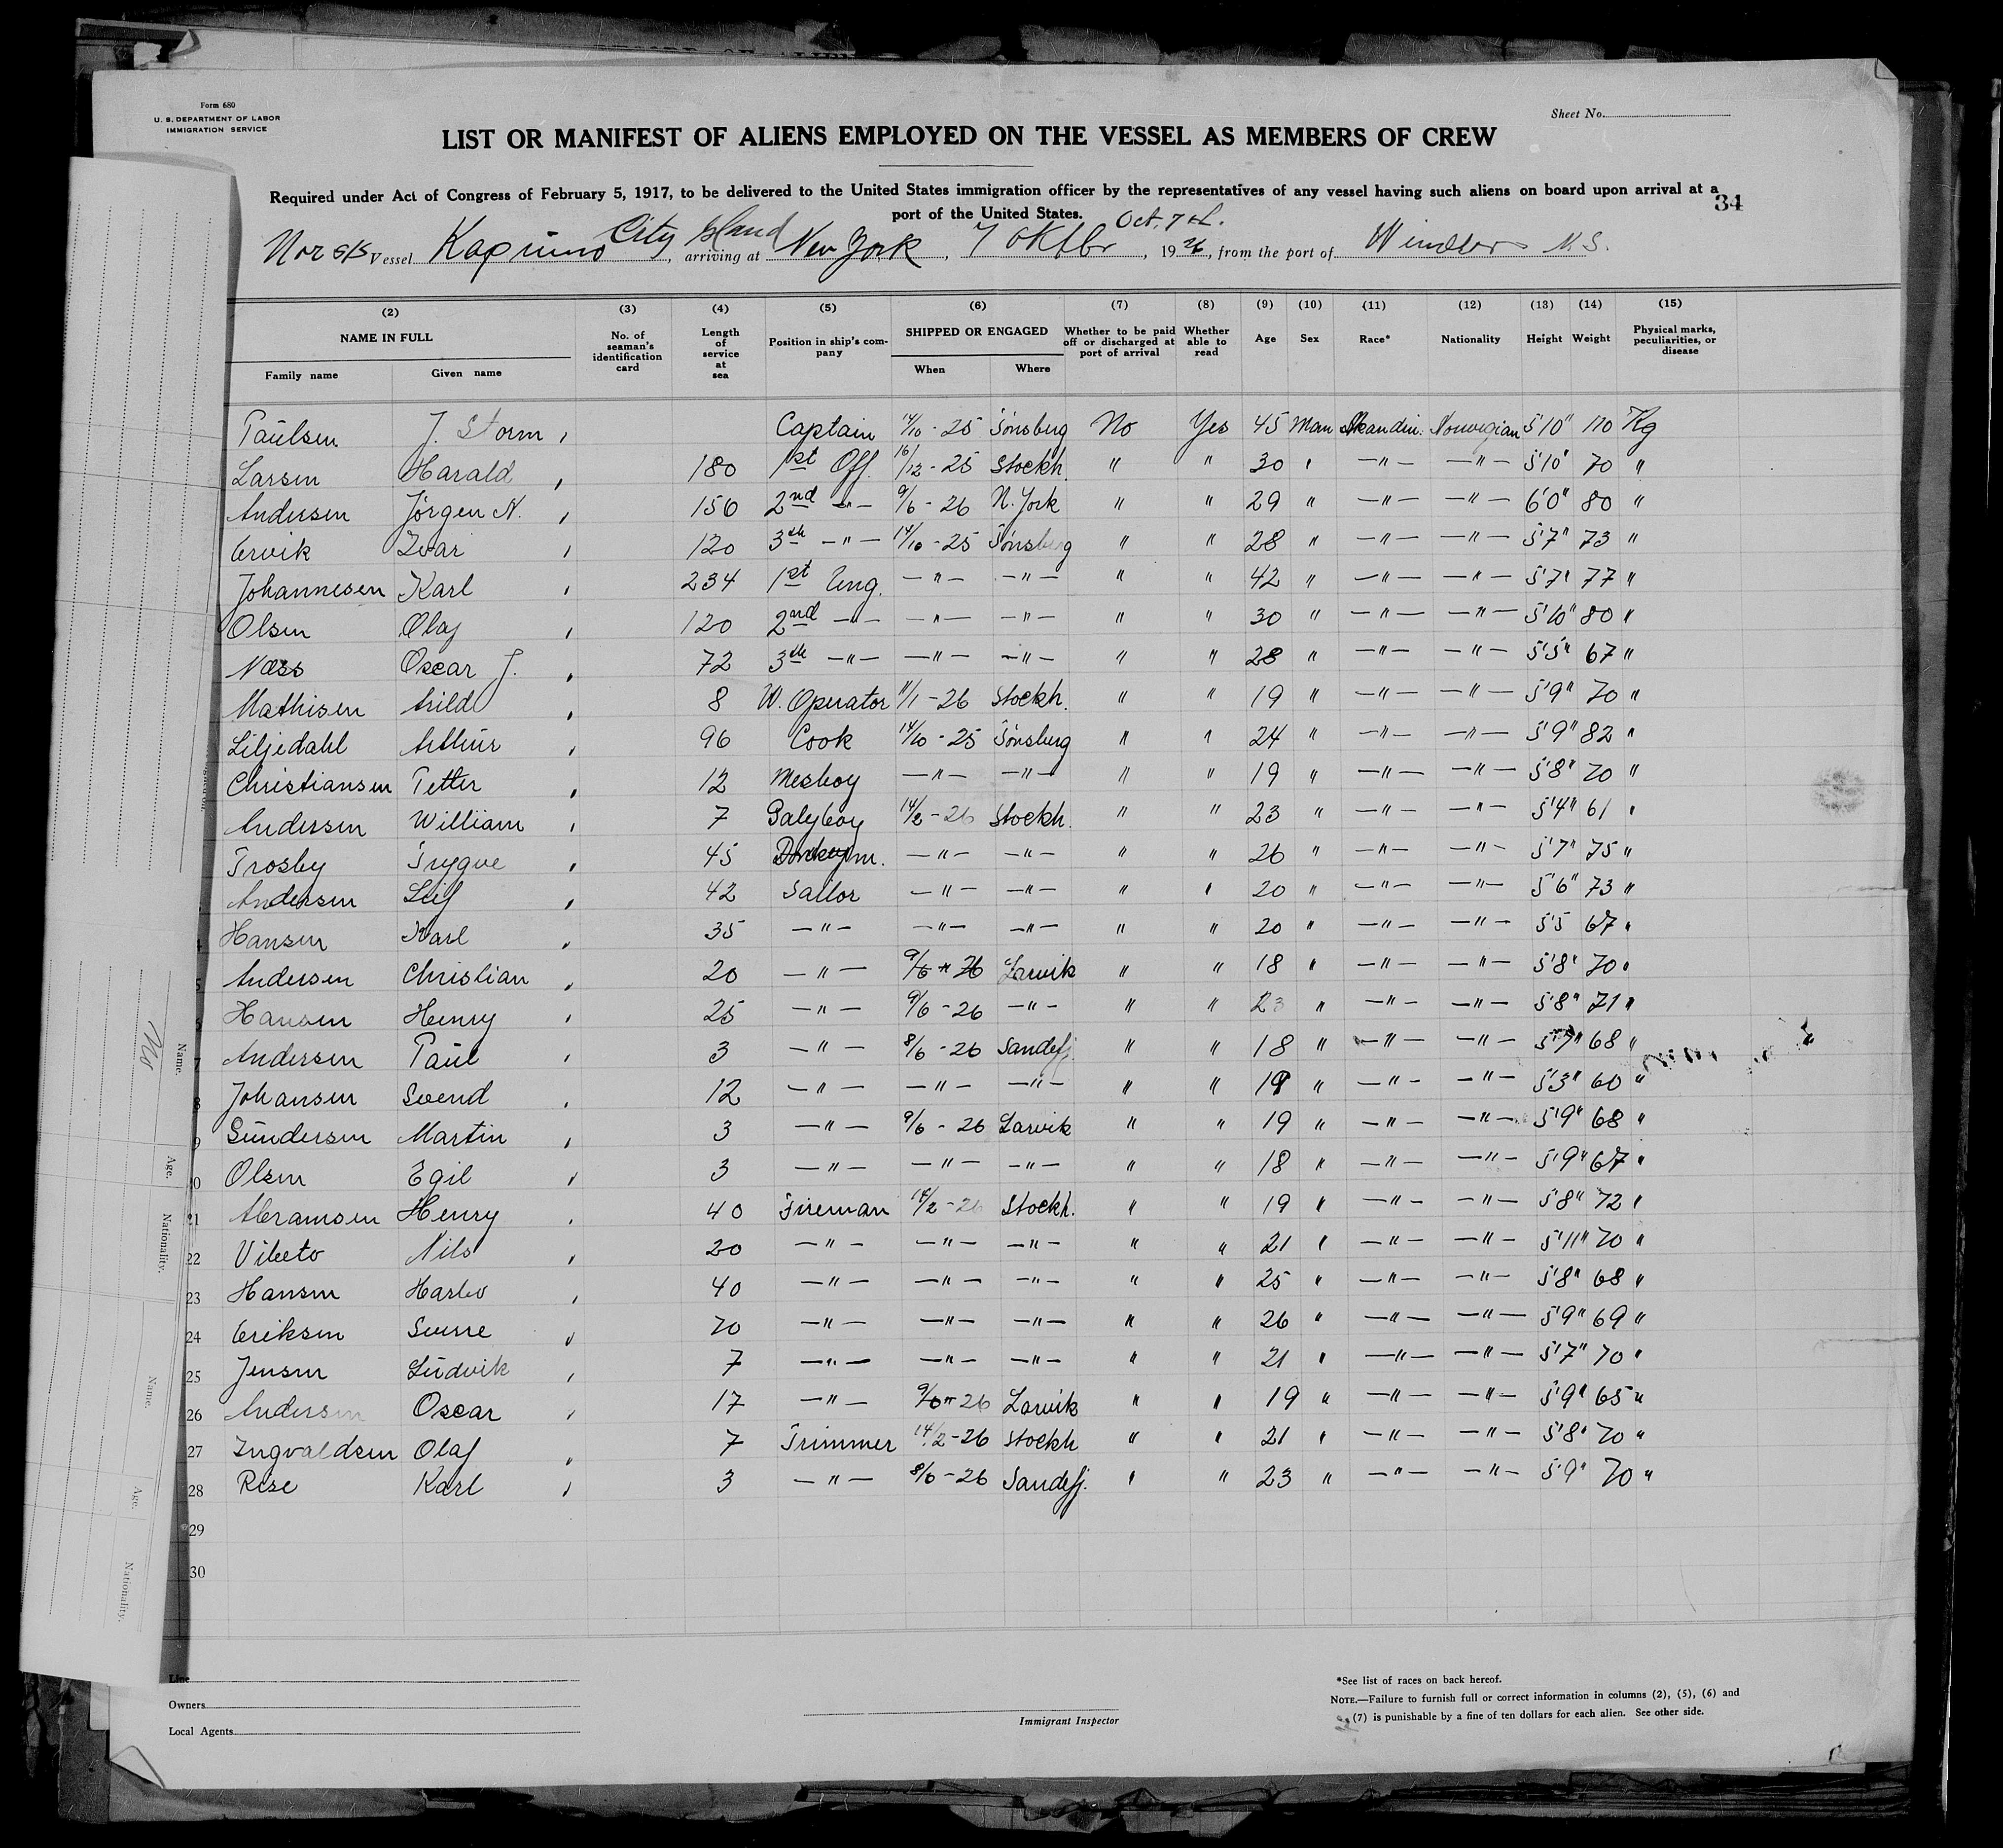 Form 680
U. S. DEPARTMENT OF LABOR
IMMIGRATION SERVICE
Sheet No.
LIST OR MANIFEST OF ALIENS EMPLOYED ON THE VESSEL AS MEMBERS OF CREW
Required under Act of Congress of February 5, 1917, to be delivered to the United States immigration officer by the representatives of any vessel having such aliens on board upon arrival at a
port of the United States.
34
City Island Oct. 7th.
Norsk Vessel Kaprino, arriving at New York, 7 oktbr, 1926, from the port of Windsor N.S.
(2) (3) (4) (5) (6) (7) (8) (9) (10) (11) (12) (13) (14) (15)
NAME IN FULL No. of seaman's identification card Length of service at sea Position in ship's company SHIPPED OR ENGAGED Whether to be paid off or discharged at port of arrival Whether able to read Age Sex Race* Nationality Height Weight Physical marks, peculiarities, or disease
Family name Given name When Where
Paulsen J. Storm , Captain 14/10 - 25 Tönsberg No Yes 45 Man Skandin. Norwegian 5'10" 110 Kg
Larsen Harald , 180 1st Off. 16/12 - 25 Stockh. " " 30 " —"— —"— 5'10" 70 "
Andersen Jörgen N. , 150 2nd —"— 9/6 - 26 N. York " " 29 " —"— —"— 6'0" 80 "
Ervik Ivar , 120 3th —"— 14/10 - 25 Tönsberg " " 28 " —"— —"— 5'7" 73 "
Johannesen Karl , 234 1st Eng. —"— —"— " " 42 " —"— —"— 5'7" 77 "
Olsen Olaf , 120 2nd —"— —"— —"— " " 30 " —"— —"— 5'10" 80 "
Næss Oscar J. , 72 3th —"— —"— —"— " " 28 " —"— —"— 5'5" 67 "
Mathisen Arild , 8 W. Operator 11/1 - 26 Stockh. " " 19 " —"— —"— 5'9" 70 "
Liljedahl Arthur , 96 Cook 14/10 - 25 Tönsberg " " 24 " —"— —"— 5'9" 82 "
Christiansen Petter , 12 Mesboy —"— —"— " " 19 " —"— —"— 5'8" 70 "
Andersen William , 7 Galyboy 14/2 - 26 Stockh. " " 23 " —"— —"— 5'4" 61 "
Trosby Trygve , 45 Donkeym. —"— —"— " " 26 " —"— —"— 5'7" 75 "
Andersen Leif , 42 Sailor —"— —"— " " 20 " —"— —"— 5'6" 73 "
Hansen Karl , 35 —"— —"— —"— " " 20 " —"— —"— 5'5 67 "
Andersen Christian , 20 —"— 9/6 - 26 Larvik " " 18 " —"— —"— 5'8" 70 "
Hansen Henry , 25 —"— 9/6 - 26 —"— " " 23 " —"— —"— 5'8" 71 "
7 Andersen Paul , 3 —"— 8/6 - 26 Sandefj. " " 18 " —"— —"— 5'7" 68 "
8 Johansen Svend , 12 —"— —"— —"— " " 19 " —"— —"— 5'3" 60 "
9 Gundersen Martin , 3 —"— 9/6 - 26 Larvik " " 19 " —"— —"— 5'9" 68 "
0 Olsen Egil , 3 —"— —"— —"— " " 18 " —"— —"— 5'9" 67 "
21 Abramsen Henry , 40 Fireman 14/2 - 26 Stockh. " " 19 " —"— —"— 5'8" 72 "
22 Vibeto Nils , 20 —"— —"— —"— " " 21 " —"— —"— 5'11" 70 "
23 Hansen , 40 —"— —"— —"— " " 25 " —"— —"— 5'8" 68 "
24 Eriksen Sverre , 70 —"— —"— —"— " " 26 " —"— —"— 5'9" 69 "
25 Jensen Ludvik , 7 —"— —"— —"— " " 21 " —"— —"— 5'7" 70 "
26 Andersen Oscar , 17 —"— 9/6 - 26 Larvik " " 19 " —"— —"— 5'9" 65 "
27 Ingvaldsen Olaf , 7 Trimmer 14/2 - 26 Stockh " " 21 " —"— —"— 5'8" 70 "
28 Rise Karl , 3 —"— 8/6 - 26 Sandefj. " " 23 " —"— —"— 5'9" 70 "
29
30
Name.
Age.
Nationality.
Name.
Age.
Nationality.
Line
Owners
Local Agents
Immigrant Inspector
*See list of races on back hereof.
NOTE.—Failure to furnish full or correct information in columns (2), (5), (6) and
(7) is punishable by a fine of ten dollars for each alien. See other side.